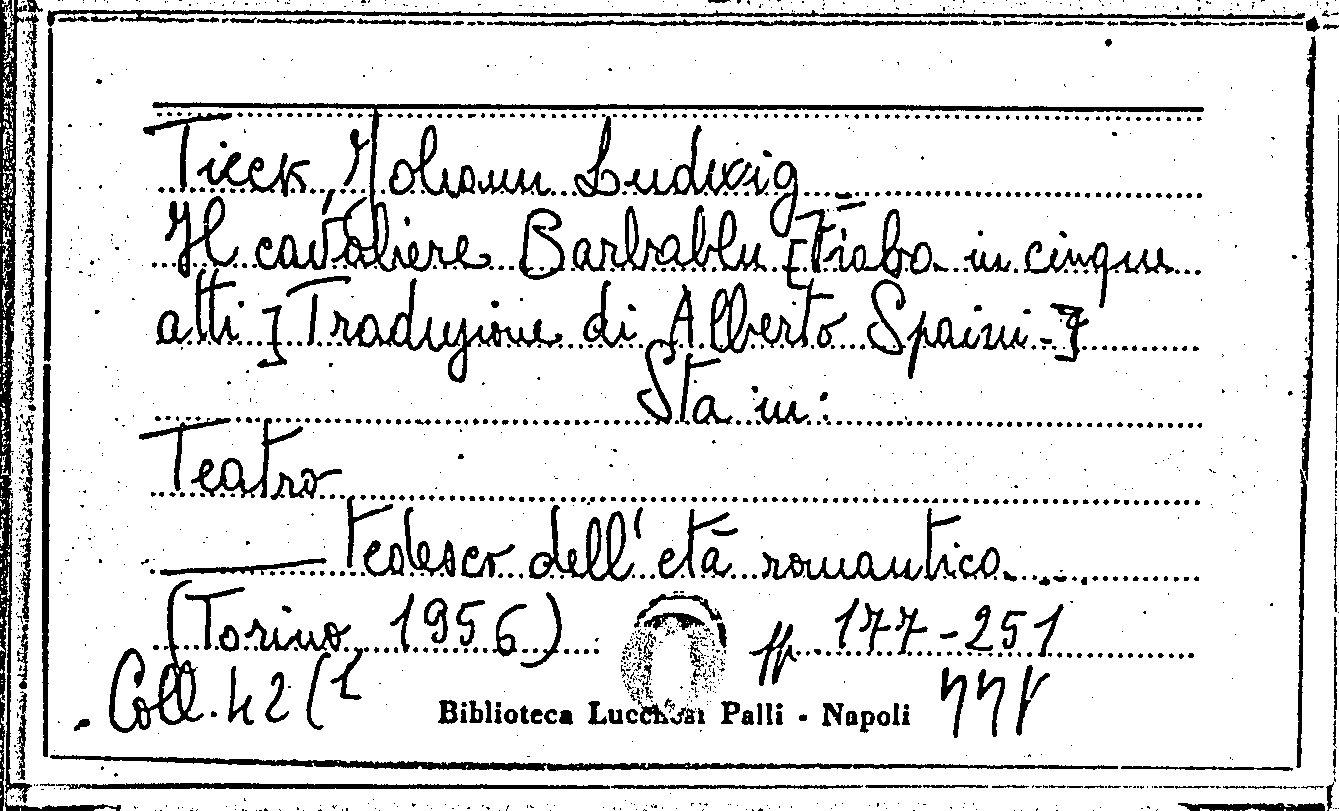 Tieck, Johann Ludwig
Il cavaliere Barbablu [Fiaba in cinque
atti] Traduzione di Alberto Spaini.]
Sta in:
Teatro
tedesco dell'età romantica
(Torino 1956) pp. 177-251
Coll. 42 (1
Biblioteca Lucchesi Palli - Napoli